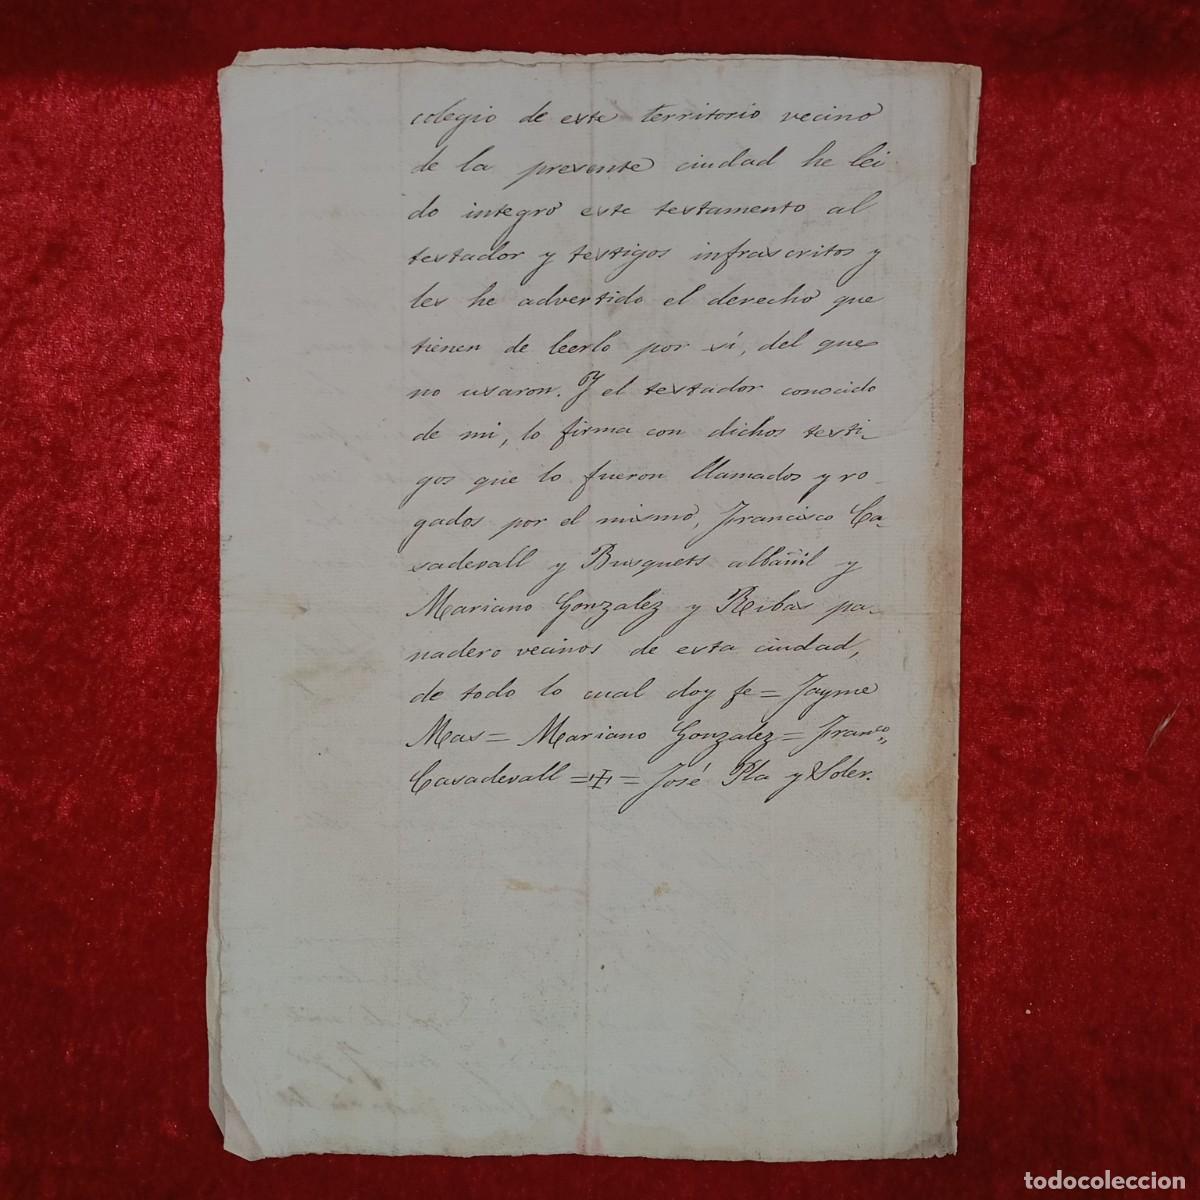 colegio de este territorio vecino
de la presente ciudad he lei
do integro este testamento al
testador y testigos infrascritos y
les he advertido el derecho que
tienen de leerlo por sí, del que
no usaron. Y el testador conocido
de mi, lo firma con dichos testi-
gos que lo fueron llamados y ro-
gados por el mismo, Francisco Ca-
sadevall y Busquets albañil y
Mariano Gonzalez y Ribas pa-
nadero vecinos de esta ciudad,
de todo lo cual doy fe = Jayme
Mas = Mariano Gonzalez = Franco,,
Casadevall = ✠ = José Pla y Soler.
todocoleccion